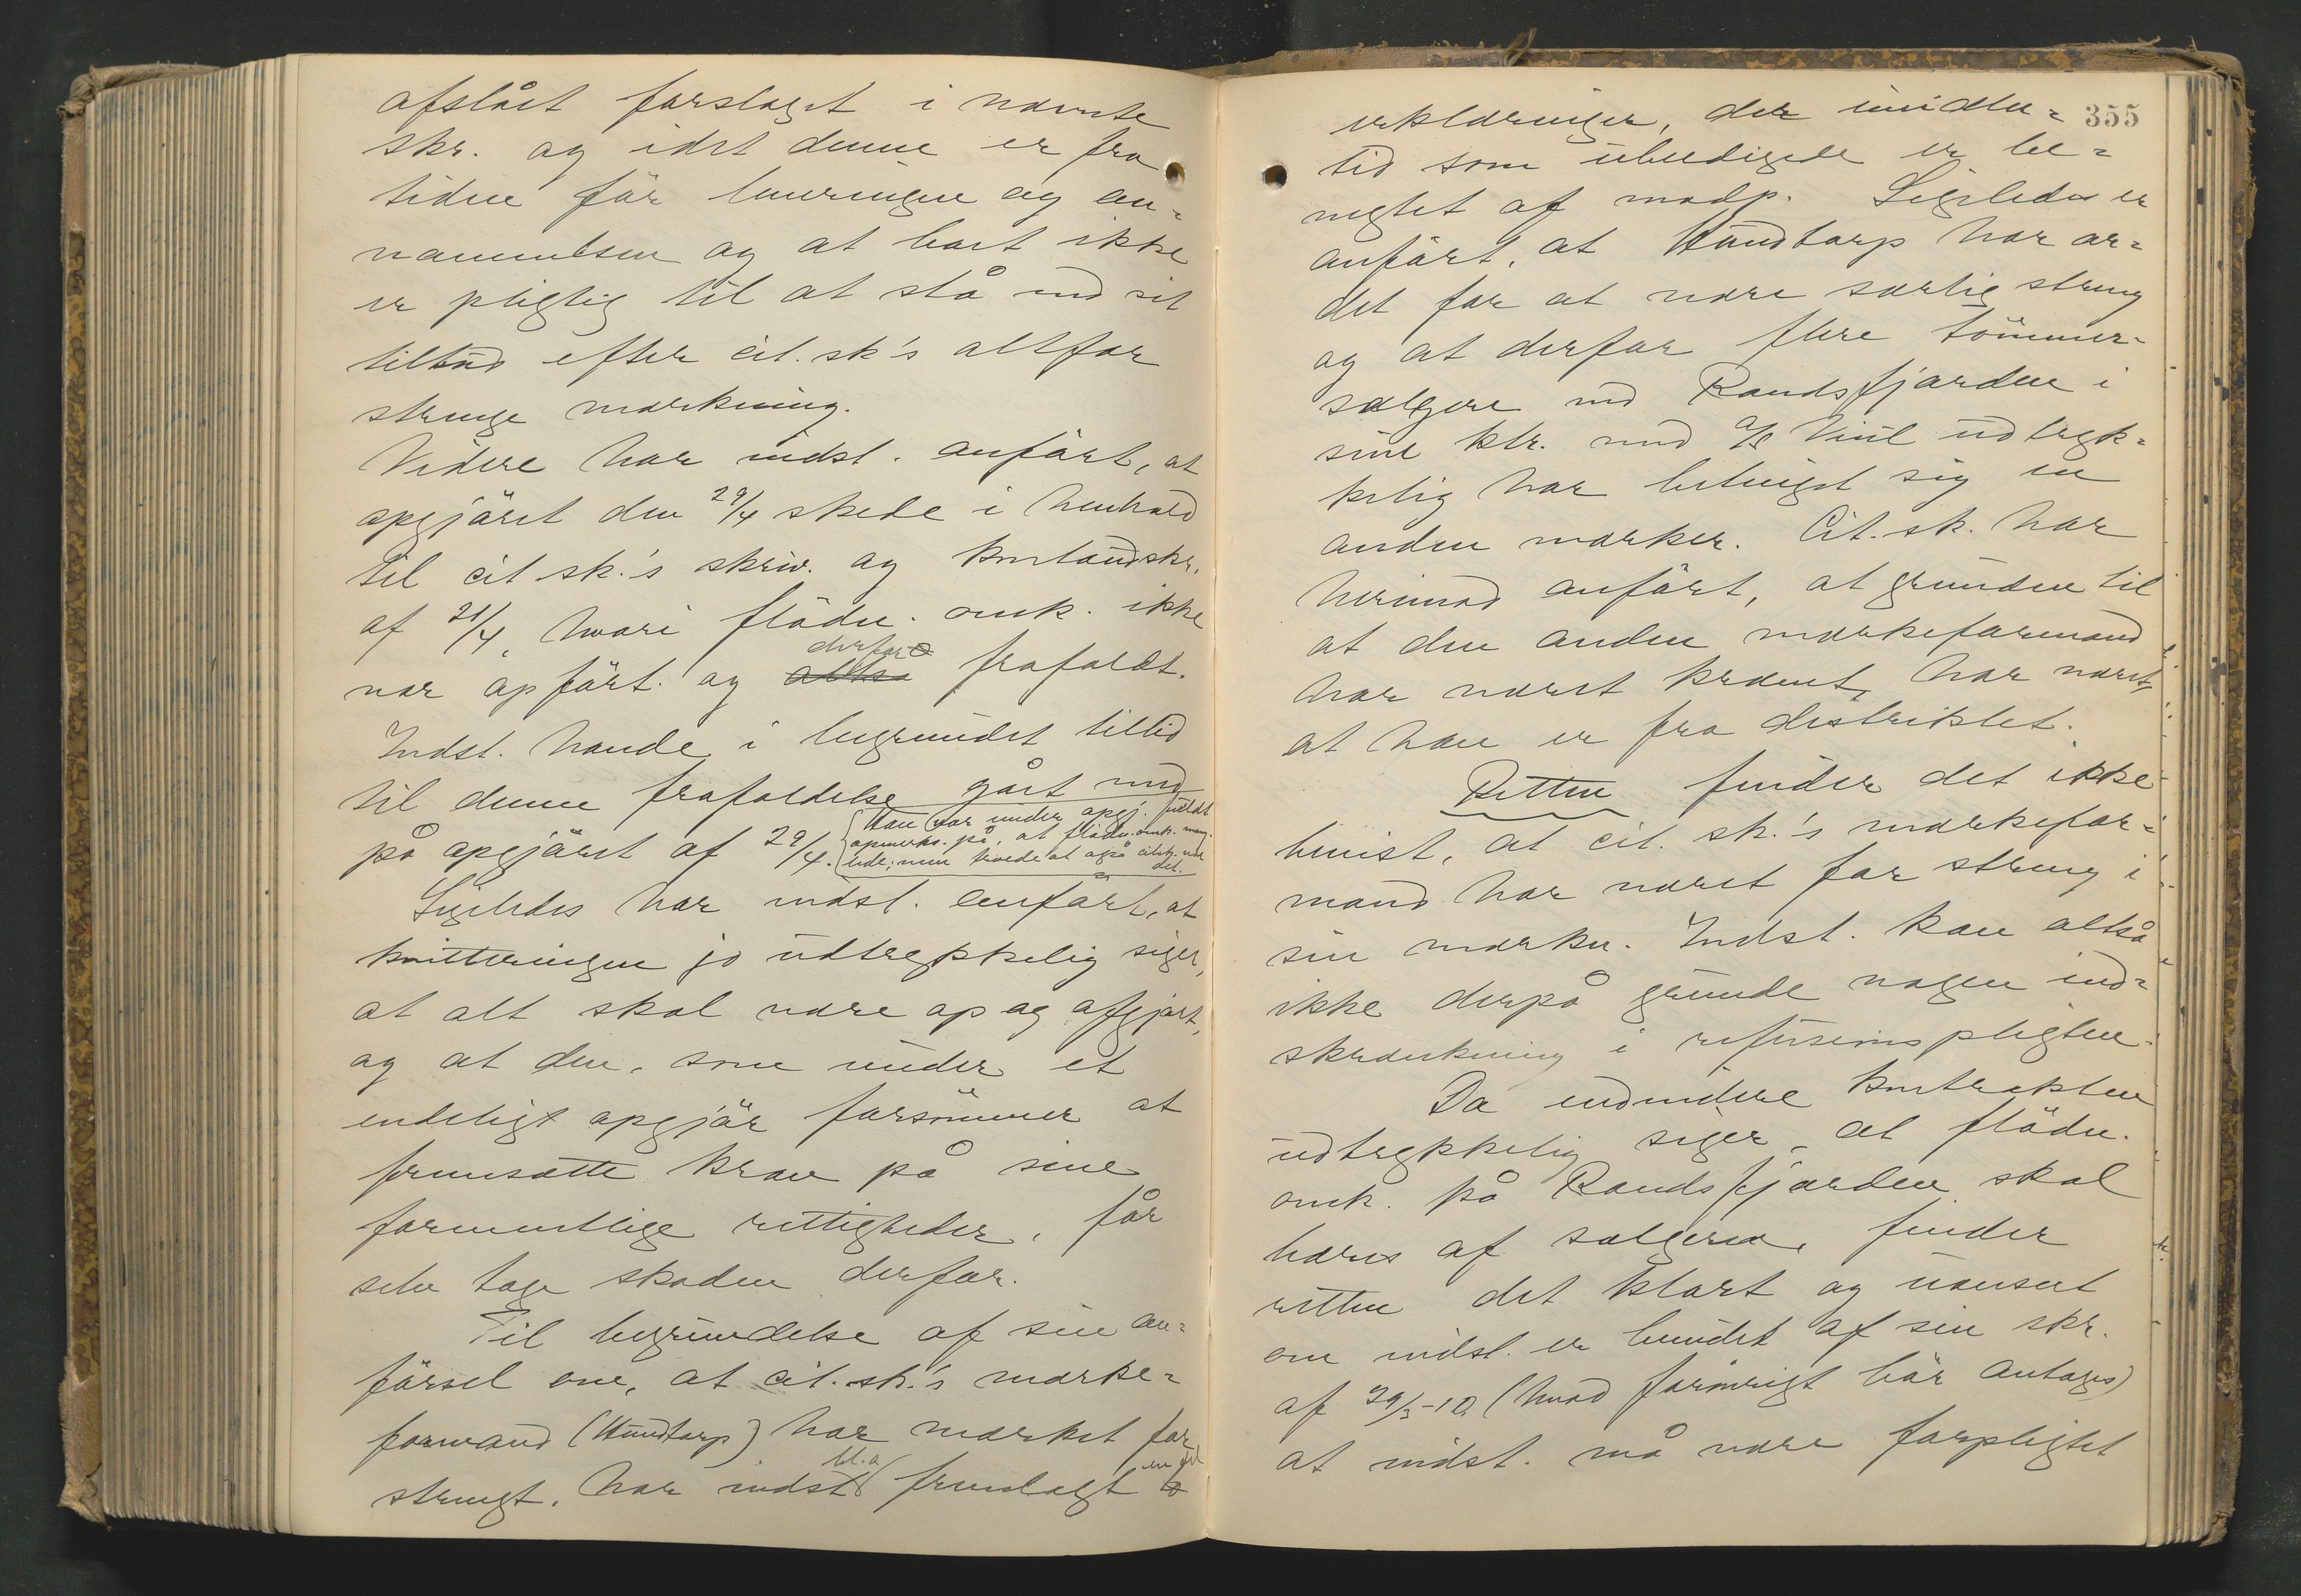 afslået forslaget i nævnte
skr. og idet denne er fra
tiden før leveringen og an=
nammelsen og at bort ikke
er pligtig til at stå ved sit
tilbud efter cit. sk's altfor
strenge mærkning.
Videre har indst. anført, at
opgjøret den 29/4 skede i henhold
til cit sk.'s skriv. og kontoudskr.
af 21/4, hvori flødn. omk. ikke
var opført. og derfor frafaldt.
Indst. havde i begrundet tillid
til denne frafaldelse gået med
på opgjøret af 29/4. (Han var under opgj. fuldt
opmerks. på, at flødn. omk. mang-
lede; men troede at også citsk. var
det.
Ligeledes har indst. anført, at
kvitteringen jo udtrykkelig siger,
at alt skal være op og afgjort,
og at den, som under et
endeligt opgjør forsømmer at
fremsætte krav på sine
formentlige rettigheder, får
selv tage skaden derfor.
Til begrundelse af sin an=
førsel om, at cit. sk.'s mærke=
formand (Hundtorp) har mærket for
strengt, har indst bl.a fremlagt en del
355
erklæringer, der imidler=
tid som ubeedigede er be=
negtet af modp. Ligeledes er
anført, at Hundtorp har or=
det for at være særlig streng
og at derfor flere tømmer-
sælgere ved Randsfjorden i
sine ktr. med A/S Viul udtryk=
kelig har betinget sig en
anden mærker. Cit. sk. har
herimod anført, at grunden til
at den anden mærkeformand
har været krævet, har været,
at han er fra distriktet.
Retten finder det ikke
bevist, at cit. sk.'s mærkefor=
mand har været for streng i
sin mærkn. Indst. kan altså
ikke derpå grunde nogen ind=
skrænkning i refusionspligten.
Da endvidere kontrakten
udtrykkelig siger, at flødn.
omk. på Randsfjorden skal
bæres af sælgeren, finder
retten det klart og uanset
om indst. er bundet af sin skr.
af 29/3-10, (hvad forøvrigt bør antages)
at indst. må være forpligtet